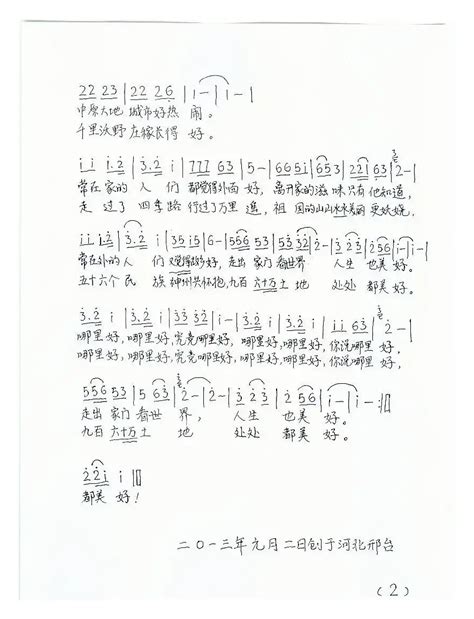 22 23 | 22 26 | i - | i - |
中原大地 城市好热 闹。
千里沃野 庄稼长得 好。
i i i·2 | 3·2 i | 777 63 | 5 - | 6 65 i | 653 | 221 63 | 2 - |
常在家的 人 们 都觉得外面 好, 离开家的滋 味只有他知道,
走 过了 四季路 行过了万里 遥, 祖 国的山山水水美丽 更妖娆,
i i i·2 | 3·2 i | 35 i5 | 6 - | 556 53 | 53 32 | 2 - | i·2 3 | 2 56 | i - | i - |
常在外的人 们 又觉得家乡好, 走出 家门看世界 人生 也美 好。
五十六个民 族 神州共怀抱, 九百 六十万土 地 处处 都美 好。
3·2 i | 3·2 i | 33 33 | 3·2 i | 3·2 i | 3·2 i | i i 63 | 2 - |
哪里好, 哪里好, 究竟哪里好, 哪里好, 哪里好, 哪里好, 你说哪里好,
哪里好, 哪里好, 究竟哪里好, 哪里好, 哪里好, 哪里好, 你说哪里好,
556 53 | 5 63 | 2 - | 2 - | i·2 3 | 2 56 | i - | i - :||
走出 家门 看世 界, 人生 也美 好。
九百 六十万土 地 处处 都美 好。
2 2 i i ||
都美 好!
二〇一三年元月二日创于河北邢台
(2)